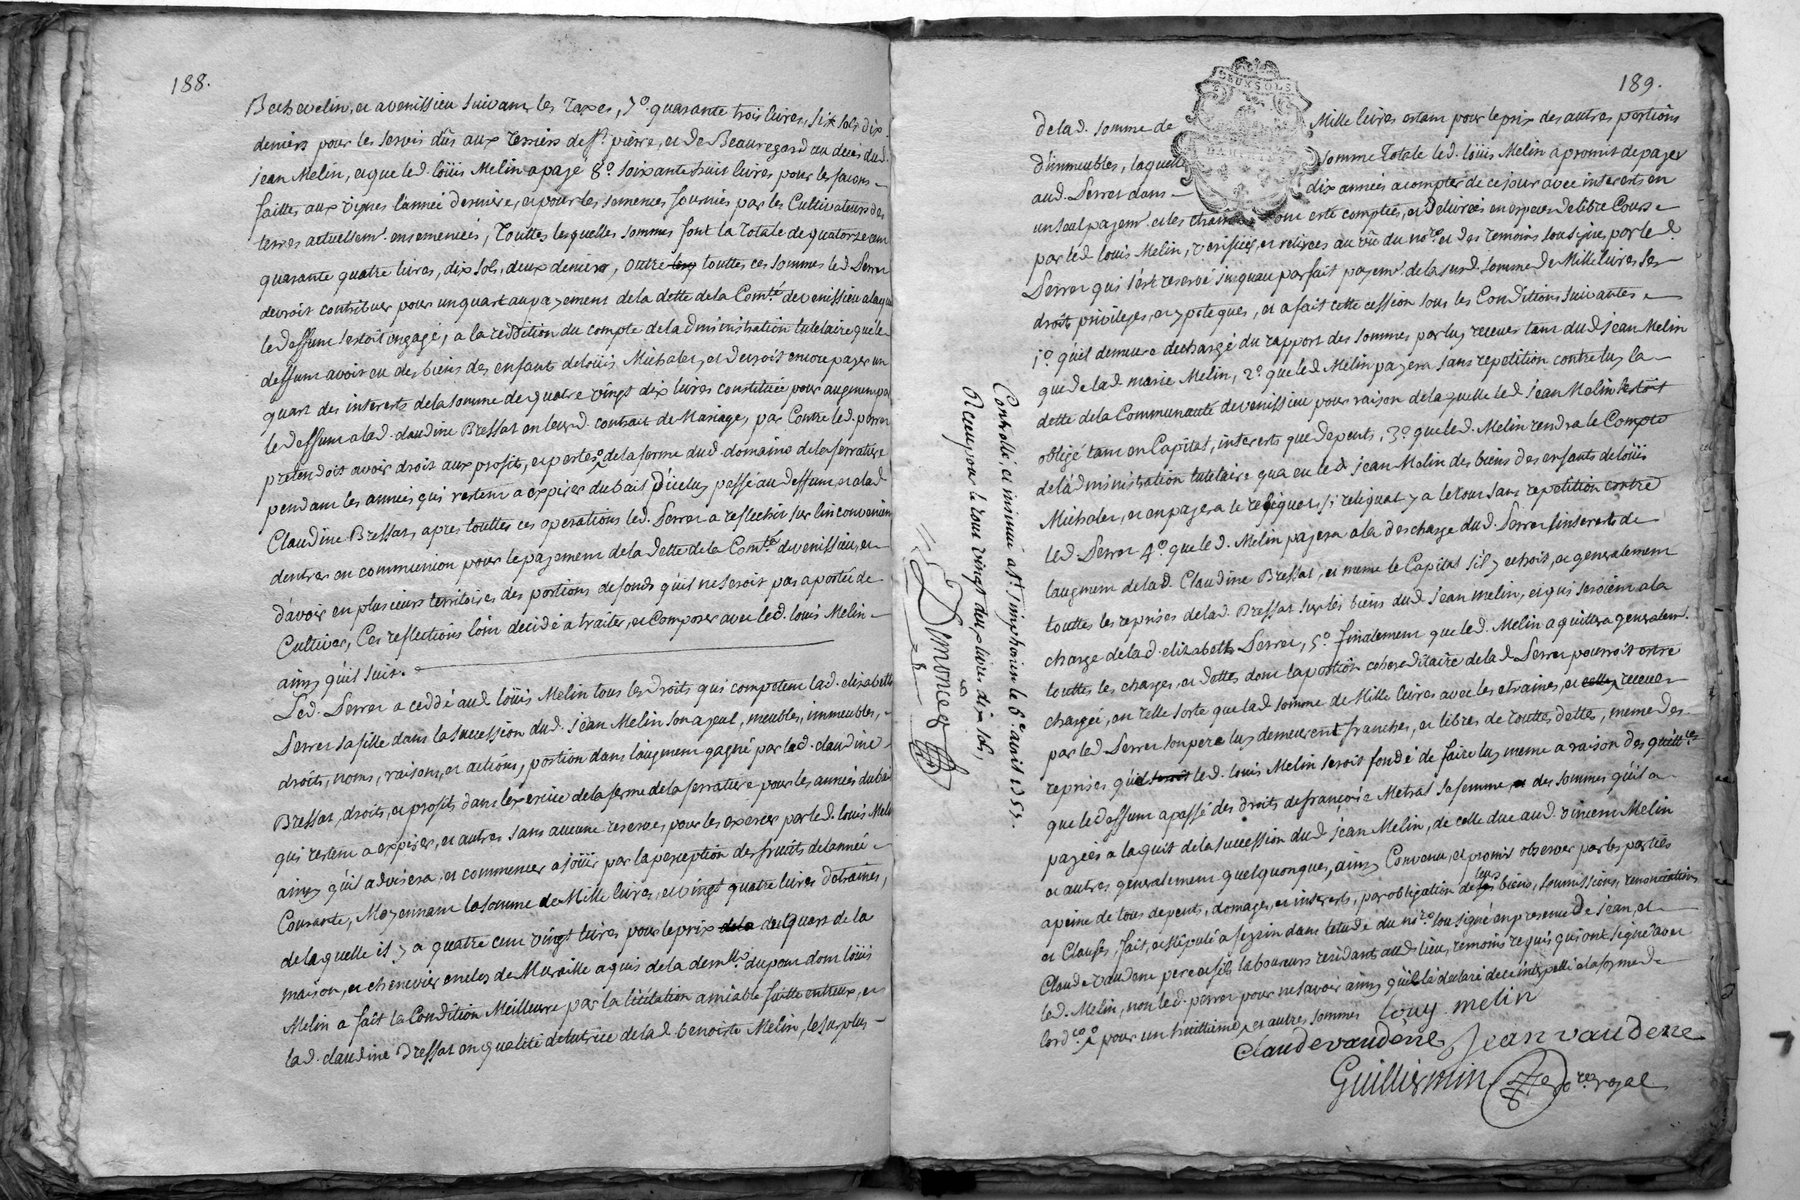 188.
Bechevelin, et a venissieu suivant les Taxes, 7º. quarante trois livres, six sols dix
deniers pour les servis dûs aux terriers de St. pierre, et de Beauregard au deces dud.
jean Melin, et que led. loüis Melin a payé 8º. soixante huit livres pour les facons
faittes aux vignes l'année derniere, et pour les semences fournies par les Cultivateurs des
terres actuellemt. ensemencées, Touttes lesquelles sommes font la Totale de quatorze cent
quarante quatre livres, dix sols, deux deniers, outre touttes ces sommes led. Perrer
devroit contribuer pour un quart au payement de la dette de la Comté. de venissieu a laquelle
le deffunt sestoit engagé, a la reddition du compte de ladministration tutelaire que le
deffunt avoit eu des biens des enfants de loüis Michalet, et devroit encore payer un
quart des interets de la somme de quatre vingt dix livres constituée pour augment par
le deffunt a lad. claudine Bressat en leurd. contrat de Mariage, par Contre led. perrer
pretendoit avoir droit aux profits, et pertes de la ferme dud. domaine de la ferratiere
pendant les années qui restent a expirer du bail d'icelus passé au deffunt et a lad
Claudine Bressat, apres touttes ces operations led. Perrer a reflechit sur linconvenient
dentrer en communion pour le payement de la dette de la Comté. de venissieu, et
davoir en plusieurs territoires des portions de fonds quil ne seroit pas a portée de
Cultiver, Ces reflections lont decidé a traiter, et Composer avec led. louis Melin
ainsy quil suit.
Led. Perrer a ceddé aud. loüis Melin tous les droits qui competent lad. elizabeth
Perrer sa fille dans la succession dud. jean Melin son ayeul, meubles, immeubles,
droits, noms, raisons, et actions, portion dans laugment gagné par lad. claudine
Bressat, droits, et profits dans lexercice de la ferme de la ferratiere pour les années du bail
qui restent a expirer, et autres sans aucune reserve, pour les exercer par led. loüis Melin
ainsy quil advisera, et commencer a joüir par la perception des fruits de lannée
Courante, Moyennant la somme de Mille livres, et vingt quatre livres detraines,
de laquelle il y a quatre cent vingt livres pour le prix dela du quart de la
maison, et chenevier enclos de Muraille acquis de la demlle. dupont dont loüis
Melin a fait la Condition Meilleure par la licitation amiable faitte entreux, et
lad. claudine Bressat en qualité de tutrice de lad. benoiste Melin, le surplus
189.
DEUX SOLS
de lad. somme de Mille livres estant pour le prix des autres portions
d'immeubles, laquelle somme Totale led. loüis Melin a promit de payer
aud. Perrer dans dix années a compter de ce jour avec interets en
un seul payemt. et les etraines ont esté comptées, et delivrées en especes de libre Cours
par led. louis Melin, verifiées, et retirées au vû du nore. et des temoins soussignés par led.
Perrer qui s'est reservé jusquau parfait payemt. de la susd. somme de Mille livres ses
droits privileges, et ypoteques, et a fait cette cession sous les Conditions suivantes
1º. quil demeure dechargé du rapport des sommes par luy receues tant dud. jean Melin
que de lad. marie Melin, 2º. que led. Melin payera sans repetition contre luy la
dette de la Communauté de venissieu pour raison de laquelle led. jean Melin sestoit
obligé tant en Capital, interets que depents, 3º. que led. Melin rendra le Compte
de ladministration tutelaire qua eu led. jean Melin des biens des enfants de loüis
Michalet, et en payera le reliquat, si reliquat y a le tout sans repetition contre
led. Perrer 4º. que led. Melin payera a la descharge dud. Perrer linterets de
laugment de lad. Claudine Bressat, et meme le Capital sil y echoit, et generalement
touttes les reprises de lad. Bressat sur les biens dud. jean melin, et qui seroient a la
charge de lad. elizabeth Perrer, 5º. finalement que led. Melin aquittera generalemt.
touttes les charges, et dettes dont la portion cohereditaire de lad. Perrer pourroit estre
chargée, en telle sorte que lad. somme de Mille livres avec les etraines, et celle receues
par led. Perrer son pere luy demeurent franches, et libres de touttes dettes, meme des
reprises que led. louis Melin seroit fondé de faire luy meme a raison des quittces
que le deffunt a passé des droits de françoise Metral sa femme, et des sommes quil a
payées a laquit de la succession dud. jean Melin, de celle due aud. vincent Melin
et autres generalement quelquonques, ainsy Convenu, et promit observer par les parties
a peine de tous depents, domages, et interets, par obligation de leurs biens, soumissions, renonciations
et Clauses, fait, et stipulé a feyzin dans letude du nore. soussigné en presence de jean, et
Claude vaudene pere et fils laboureurs residants aud. lieu, temoins requis qui ont signé avec
led. Melin, non led. perrer pour ne savoir ainsy quil la declaré de ce interpellé a la forme de
lordce. pour un huittieme, et autres sommes louy melin
Claude vaudene Jean vaudene
Guillermin nore. royal
Controllé, et insinué a St. Simphorien le 6e. avril 1755.
Receu pour le tout vingt deux livre dix sols,